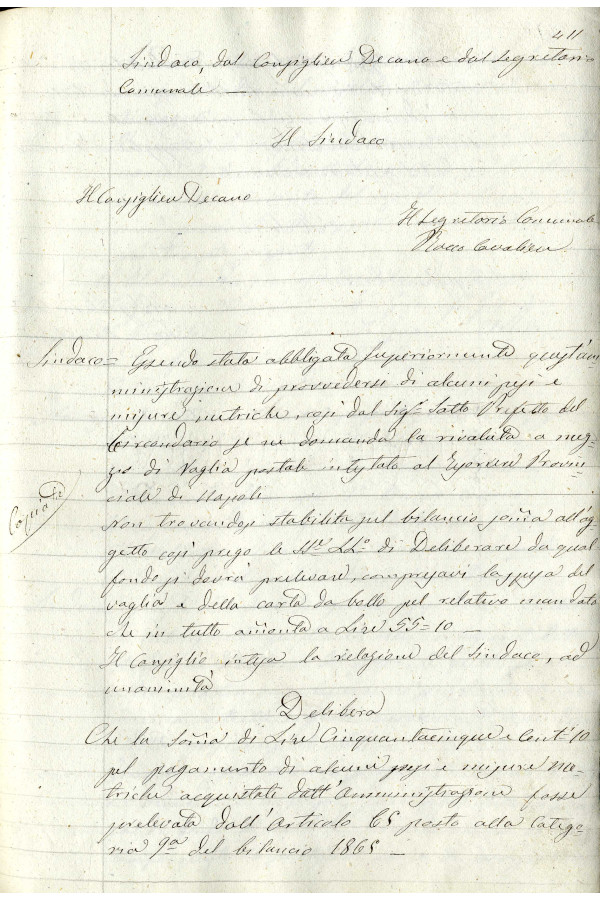 411
Sindaco, dal Consigliere Decano e dal Segretario
Comunale —
Il Sindaco
Il Consigliere Decano
Il Segretario Comunale
Rocco Cavalieri
Sindaco = Essendo stata obbligata superiormente quest'am
ministrazione di provvedersi di alcuni pesi e
misure metriche, così dal Sigr Sotto Prefetto del
Circondario se ne domanda la rivaluta a mez-
zo di Vaglia postale intestato al Esercere Provin-
ciale di Napoli
Copiata
Non trovandosi stabilita pel bilancio somma all'og-
getto così prego le SSrie LLo di Deliberare da qual
fondo si dovrà prelevare, compresavi la spesa del
vaglia e della carta da bollo pel relativo mandato
che in tutto ammonta a Lire 55=10 —
Il Consiglio intesa la relazione del Sindaco, ad
unanimità
Delibera
Che la somma di Lire Cinquantacinque e Centi 10
pel pagamento di alcuni pesi e misure me-
triche acquistati dall'Amministrazione fosse
prelevata dall'Articolo 65 posto alla Catego-
ria 9a del bilancio 1865 —